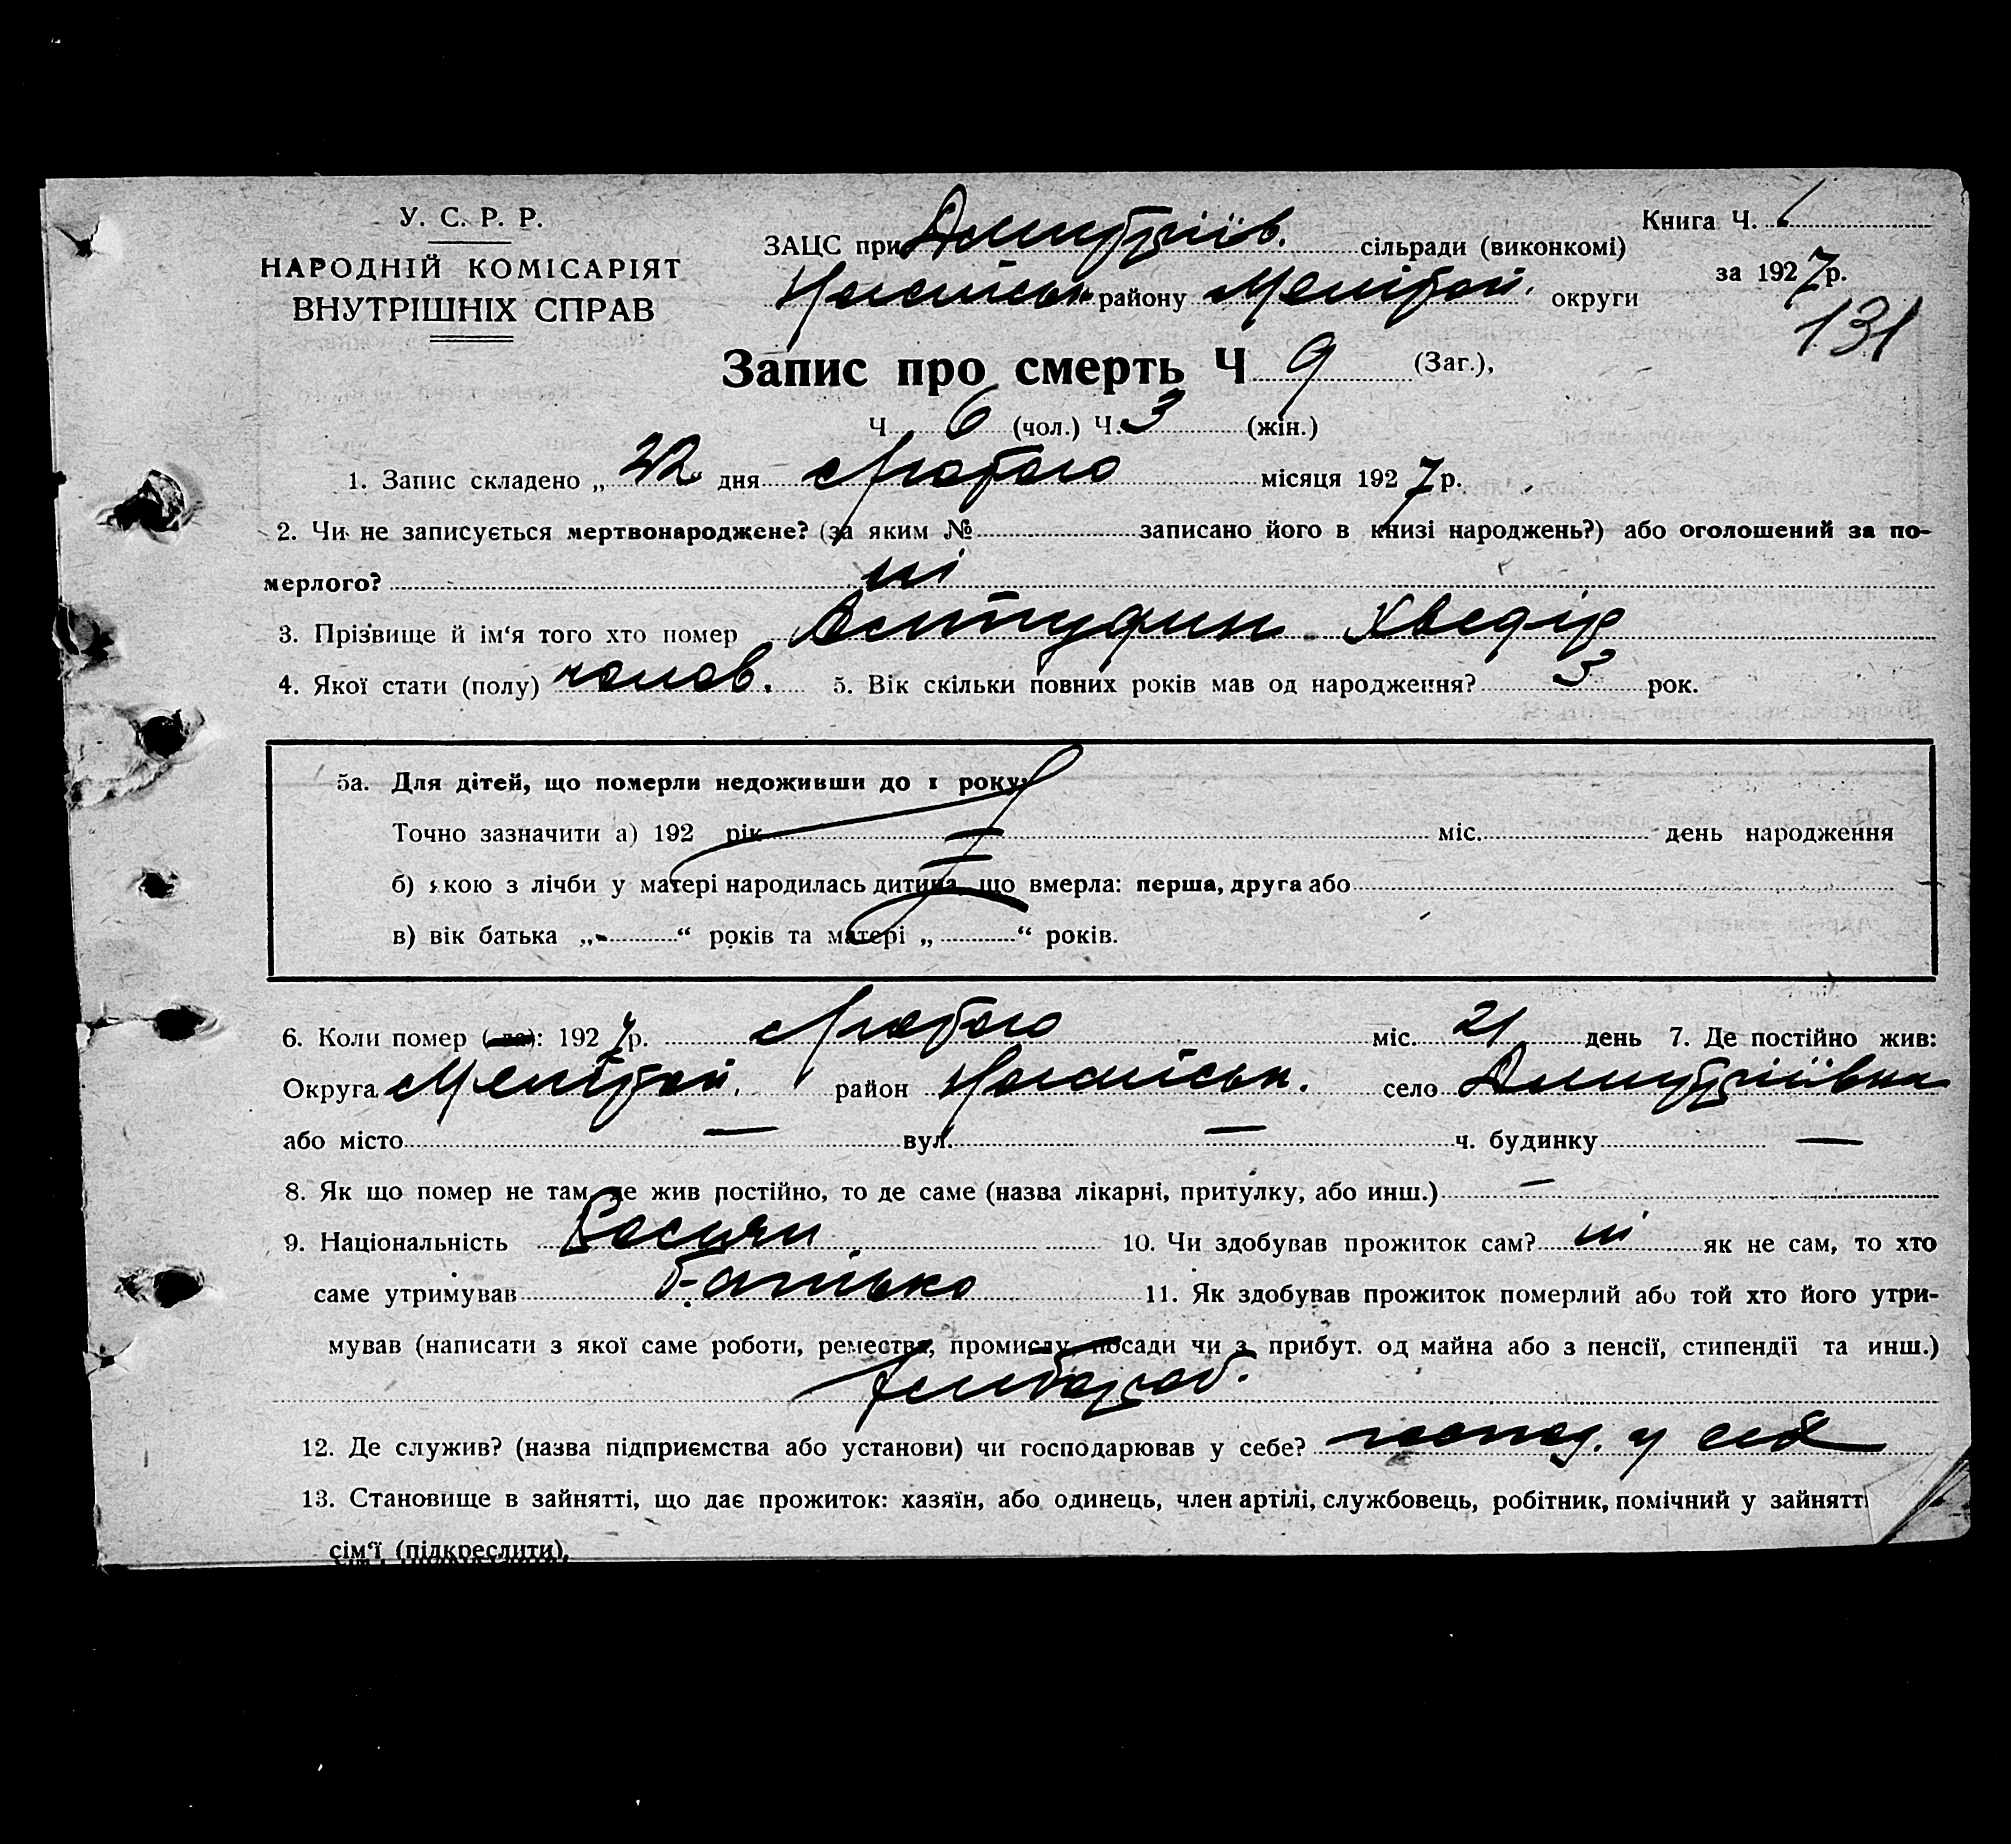 У. С. Р. Р.
НАРОДНІЙ КОМІСАРІЯТ
ВНУТРІШНІХ СПРАВ
Книга Ч. 1
ЗАЦС при Дмитріїв. сільради (виконкомі)
за 1927 р.
Ногайськ району Мелітоп. округи
131
Запис про смерть Ч 9 (Заг.),
Ч 6 (чол.) Ч. 3 (жін.)
1. Запис складено „ 22 “ дня Лютого місяця 1927 р.
2. Чи не записується мертвонароджене? (за яким № записано його в книзі народжень?) або оголошений за по-
мерлого? ні
3. Прізвище й ім‘я того хто помер Хведір
4. Якої стати (полу) чолов. 5. Вік скільки повних років мав од народження? 3 рок.
5а. Для дітей, що померли недоживши до 1 року:
Точно зазначити а) 192 рік міс. день народження
б) якою з лічби у матері народилась дитина, що вмерла: перша, друга або
в) вік батька „ “ років та матері „ “ років.
6. Коли помер (-ла): 1927 р. Лютого міс. 21 день 7. Де постійно жив:
Округа Мелітоп. район Ногайськ. село Дмитріївка
або місто — вул. — ч. будинку —
8. Як що помер не там, де жив постійно, то де саме (назва лікарні, притулку, або инш.) —
9. Національність Росіян 10. Чи здобував прожиток сам? ні як не сам, то хто
саме утримував батько 11. Як здобував прожиток померлий або той хто його утри-
мував (написати з якої саме роботи, ремества, промислу, посади чи з прибут. од майна або з пенсії, стипендії та инш.)
хлібороб.
12. Де служив? (назва підприємства або установи) чи господарював у себе? господ. у себе
13. Становище в зайнятті, що дає прожиток: хазяїн, або одинець, член артілі, службовець, робітник, помічний у зайнятт
сім‘ї (підкреслити).